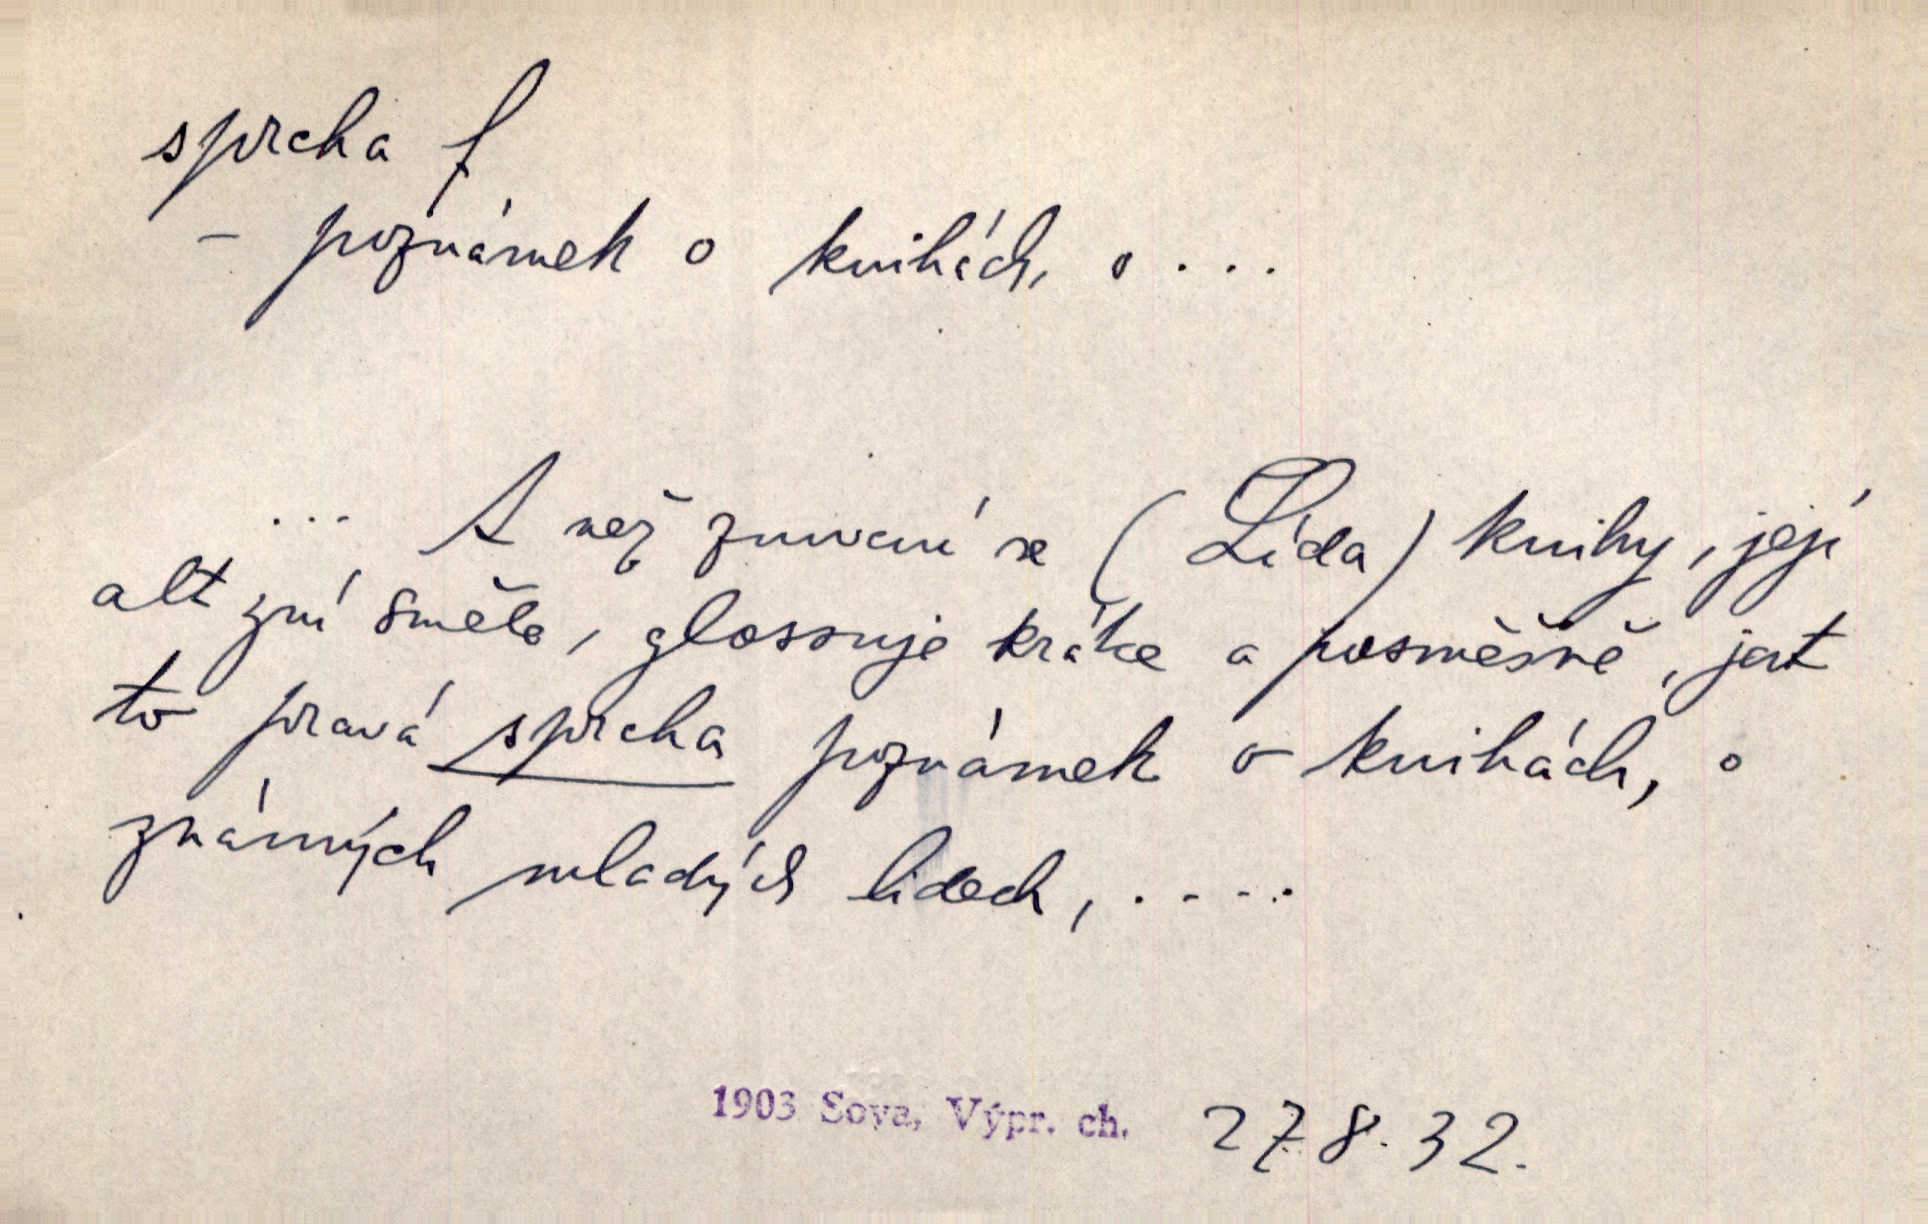 sprcha f
– poznámek o knihách, o ...
... A než unaví se (Lída) knihy, její
alt zní směle, glossuje krátce a posměšně, jest
to pravá sprcha poznámek o knihách, o
známých mladých lidech, .....
1903 Sova, Výpr. ch. 278.32.